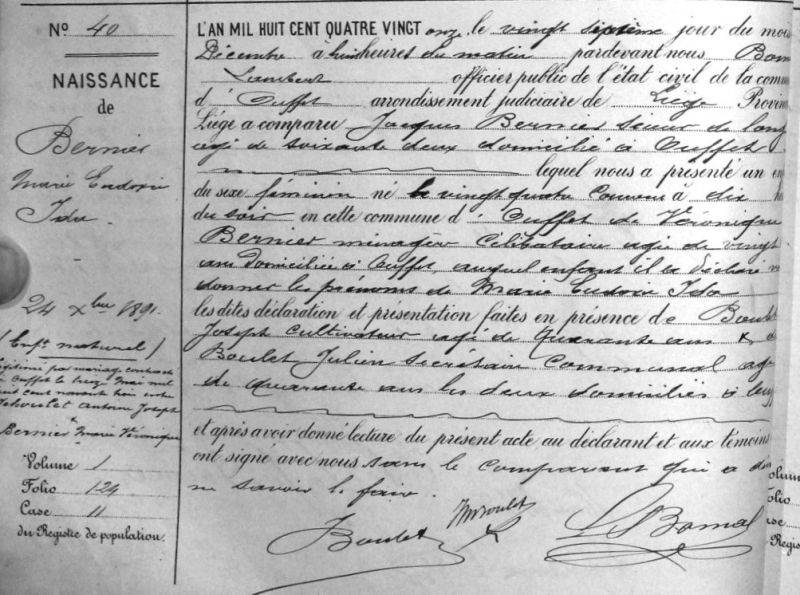 N° 40
NAISSANCE
de
Bernier
Marie Eudoxie
Ida
24 Xbre 1891.
(Enft naturel)
Légitimé par mariage contracté
à Ouffet le treize Mai mil
huit cent nonante trois entre
Antoine Joseph
&
Bernier Marie Véronique
Volume 1
Folio 124
Case 11
du Registre de population.
L'AN MIL HUIT CENT QUATRE VINGT onze le vingt septième jour du mois
Décembre à huit heures du matin pardevant nous Bom
Lambert officier public de l'état civil de la comm
d' Ouffet arrondissement judiciaire de Liége Provin
Liége a comparu Jacques Bernier scieur de long
agé de soixante deux domicilié à Ouffet
lequel nous a présenté un en
du sexe féminin né le vingt quatre courant à dix h
du soir en cette commune d' Ouffet de Véronique
Bernier ménagère célibataire agée de vingt
ans domiciliée à Ouffet, auquel enfant il a déclaré
donner les prénoms de Marie Eudoxie Ida
les dites déclaration et présentation faites en présence de Boulet
Joseph cultivateur agé de quarante ans & d
Boulet Julien secrétaire communal ag
de quarante ans les deux domiciliés à Ouff
et après avoir donné lecture du présent acte au déclarant et aux témoins
ont signé avec nous sans le comparant qui a dé
ne savoir le faire.
Boulet
Boulet
L Bomal
olum
olio
ase
Regis